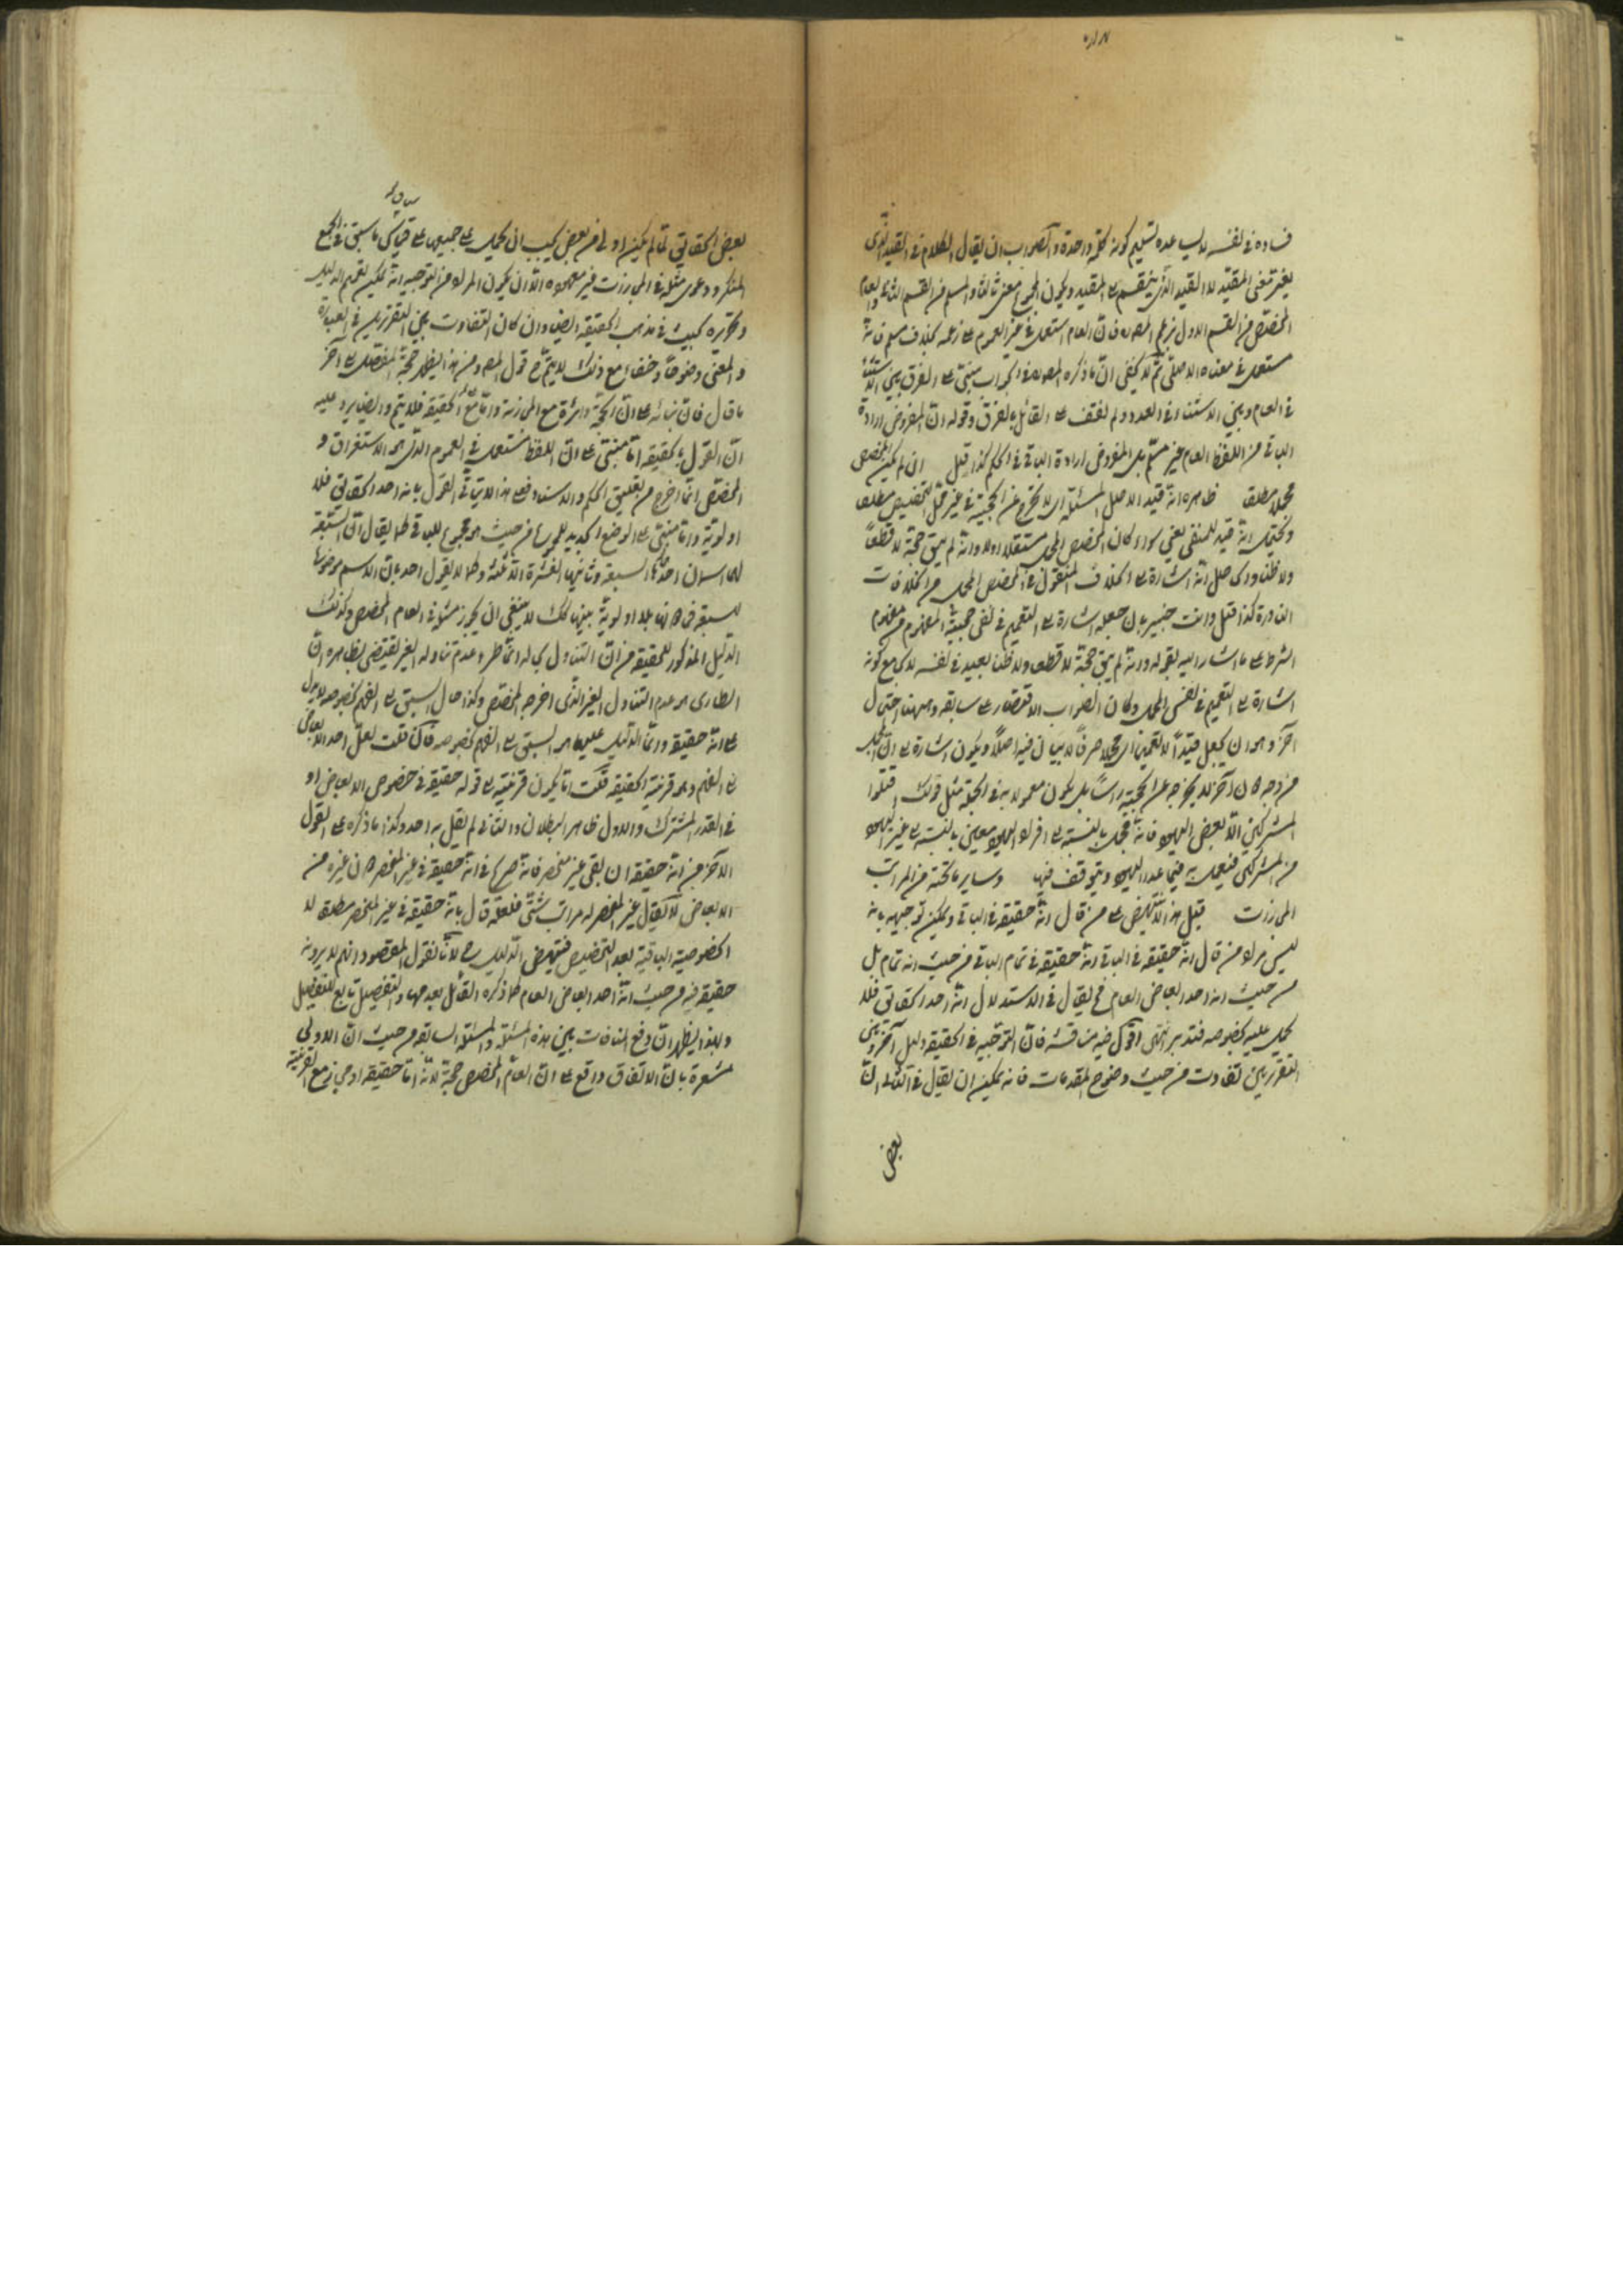 فساده في نفسه لا يساعده تسليم كونه كلمة واحدة والصواب ان يقال الكلام في القيد الذي
يغير معنى المقيد لا القيد الذي ينقسم المقيد ويكون المجموع معنى ثالثا والمسلم من القسم الثاني والعام
المخصص من القسم الاول بزعم المص فان العام استعمل في غير العموم على زعمه بخلاف مسلم فانه
مستعمل في معناه الاصلي ثم لا يخفى ان ما ذكره المص في الجواب مبني على الفرق بين الاستثناء
في العام وبين الاستثناء في العدد ولم نقف على القائل بالفرق وقوله ان المفروض ارادة
الباقي من اللفظ العام غير مسلم بل المفروض ارادة الباقي في الحكم كذا قيل ان لم يكن المخصص
مجملا مطلقا ظاهره انه قيد لاصل المسئلة اي لا تخرج عن الحجية في غير محل التخصيص مطلقا
ويحتمل انه قيد للمنفي يعني سواء كان المخصص المجمل مستقلا او لا وانه لم يبق حجة لا قطعا
ولا ظنا والحاصل انه اشارة الى الخلاف المنقول في المخصص المجمل من الخلافات
النادرة كذا قيل وانت خبير بان جعله اشارة الى التعميم في نفي حجيته المفهوم من مفهوم
الشرط على ما اشار اليه بقوله وانه لم يبق حجة لا قطعا ولا ظنا بعيد في نفسه لا مع كونه
اشارة الى التعميم في نفس المجمل وكان الصواب الاقتصار على سابقه وههنا احتمال
آخر وهو ان يجعل قيدا لا لتعميم اي مجملا صرفا لا بيان فيه اصلا ويكون اشارة الى ان المجمل
من وجه كان آخر لا يخرجه عن الحجية راسا بل يكون معمولا به في الجملة مثل قولك اقتلوا
المشركين الا بعض اليهود فانه مجمل بالنسبة الى افراد اليهود معين بالنسبة الى غير اليهود
من المشركين فيعمل به فيما عدا اليهود ويتوقف فيها وساير ما تحته من المراتب
المجازات قيل هذا لا ينهض على من قال انه حقيقة في الباقي ويمكن توجيهه بانه
ليس مراد من قال انه حقيقة في الباقي انه حقيقة في تمام الباقي من حيث انه تمام بل
من حيث انه احد ابعاض العام فح يقال في الاستدلال انه احد الحقائق فلا
يحمل عليه بخصوصه فتدبر انتهى اقول فيه مناقشة فان التوجيه في الحقيقة دليل آخر وبين
التقريرين تفاوت من حيث وضوح المقدمات فانه يمكن ان يقال في الثاني ان
بعض
بعض الحقائق لما لم يكن اولى من بعض يجب ان يحمل على جميعها على قياس ما سبق في الجمع
المنكر ودعوى مثله في المجازات غير مسموعة الا ان يكون المراد من التوجيه انه يمكن تعميم الدليل
وتحريره بحيث في مذهب الحقيقة ايضا وان كان التفاوت بين التقريرين في العبارة
والمعنى وضوحا وخفاء مع ذلك لا يتم ح قول المص ومن هنا يظهر حجة المفصل على آخر
ما قال فان بنائه على ان الحجة دائرة مع المجازية واما مع الحقيقة فلا يتم وايضا يرد عليه
ان القول بالحقيقة اما مبني على ان اللفظ مستعمل في العموم الذي هو الاستغراق و
المخصص انما اخرج من تعليق الحكم والاسناد فعلى هذا لا يتأتى القول بانه احد الحقائق فلا
اولوية واما مبني على الوضع الجديد للمجموع من حيث هو مجموع للباقي كما يقال ان السبعة
لها اسمان احدهما السبعة وثانيهما العشرة الا ثلثة وكما لا يقول احد بان الاسم موضوعا
للسبعة فكانهما بلا اولوية بينهما كذلك لا ينبغي ان يجوز مثله في العام المخصص وكذلك
الدليل المذكور للحقيقة من ان التناول بحاله انما طرء عدم تناوله الغير يقتضي بظاهره ان
الطاري هو عدم التناول الغير الذي اخرجه المخصص وكذا حال السبق الى الفهم بخصوصه لا يدل
على انه حقيقة وانما الدليل عليها هو السبق الى الفهم بخصوصه فان قلت لعل احد الابعاض
الى الفهم وهو قرينة الحقيقة قلت اما يكون قرينة على قوله حقيقة في خصوص الابعاض او
في القدر المشترك والاول ظاهر البطلان والثاني لم يقل به احد وكذا ما ذكره على القول
الآخر من انه حقيقة ان بقي غير منحصر فانه صرح في انه حقيقة في غير المنحصر كان غيره من
الابعاض لا يقال غير المنحصر له مراتب شتى فلعله قال بانه حقيقة في غير المنحصر مطلقا لا
الخصوصية الباقية بعد التخصيص فينهض الدليل ح لانا نقول المقصود انهم لا يرونه
حقيقة فيه من حيث انه احد ابعاض العام كما ذكره القائل بعدمها والتفصيل تابع للتفصيل
ولهذا يظهر ان دفع المنافات بين هذه المسئلة والمسئلة السابقة من حيث ان الاولى
مشعرة بان الاتفاق واقع على ان العام المخصص حجة لانه اما حقيقة او مجاز مع القرينة